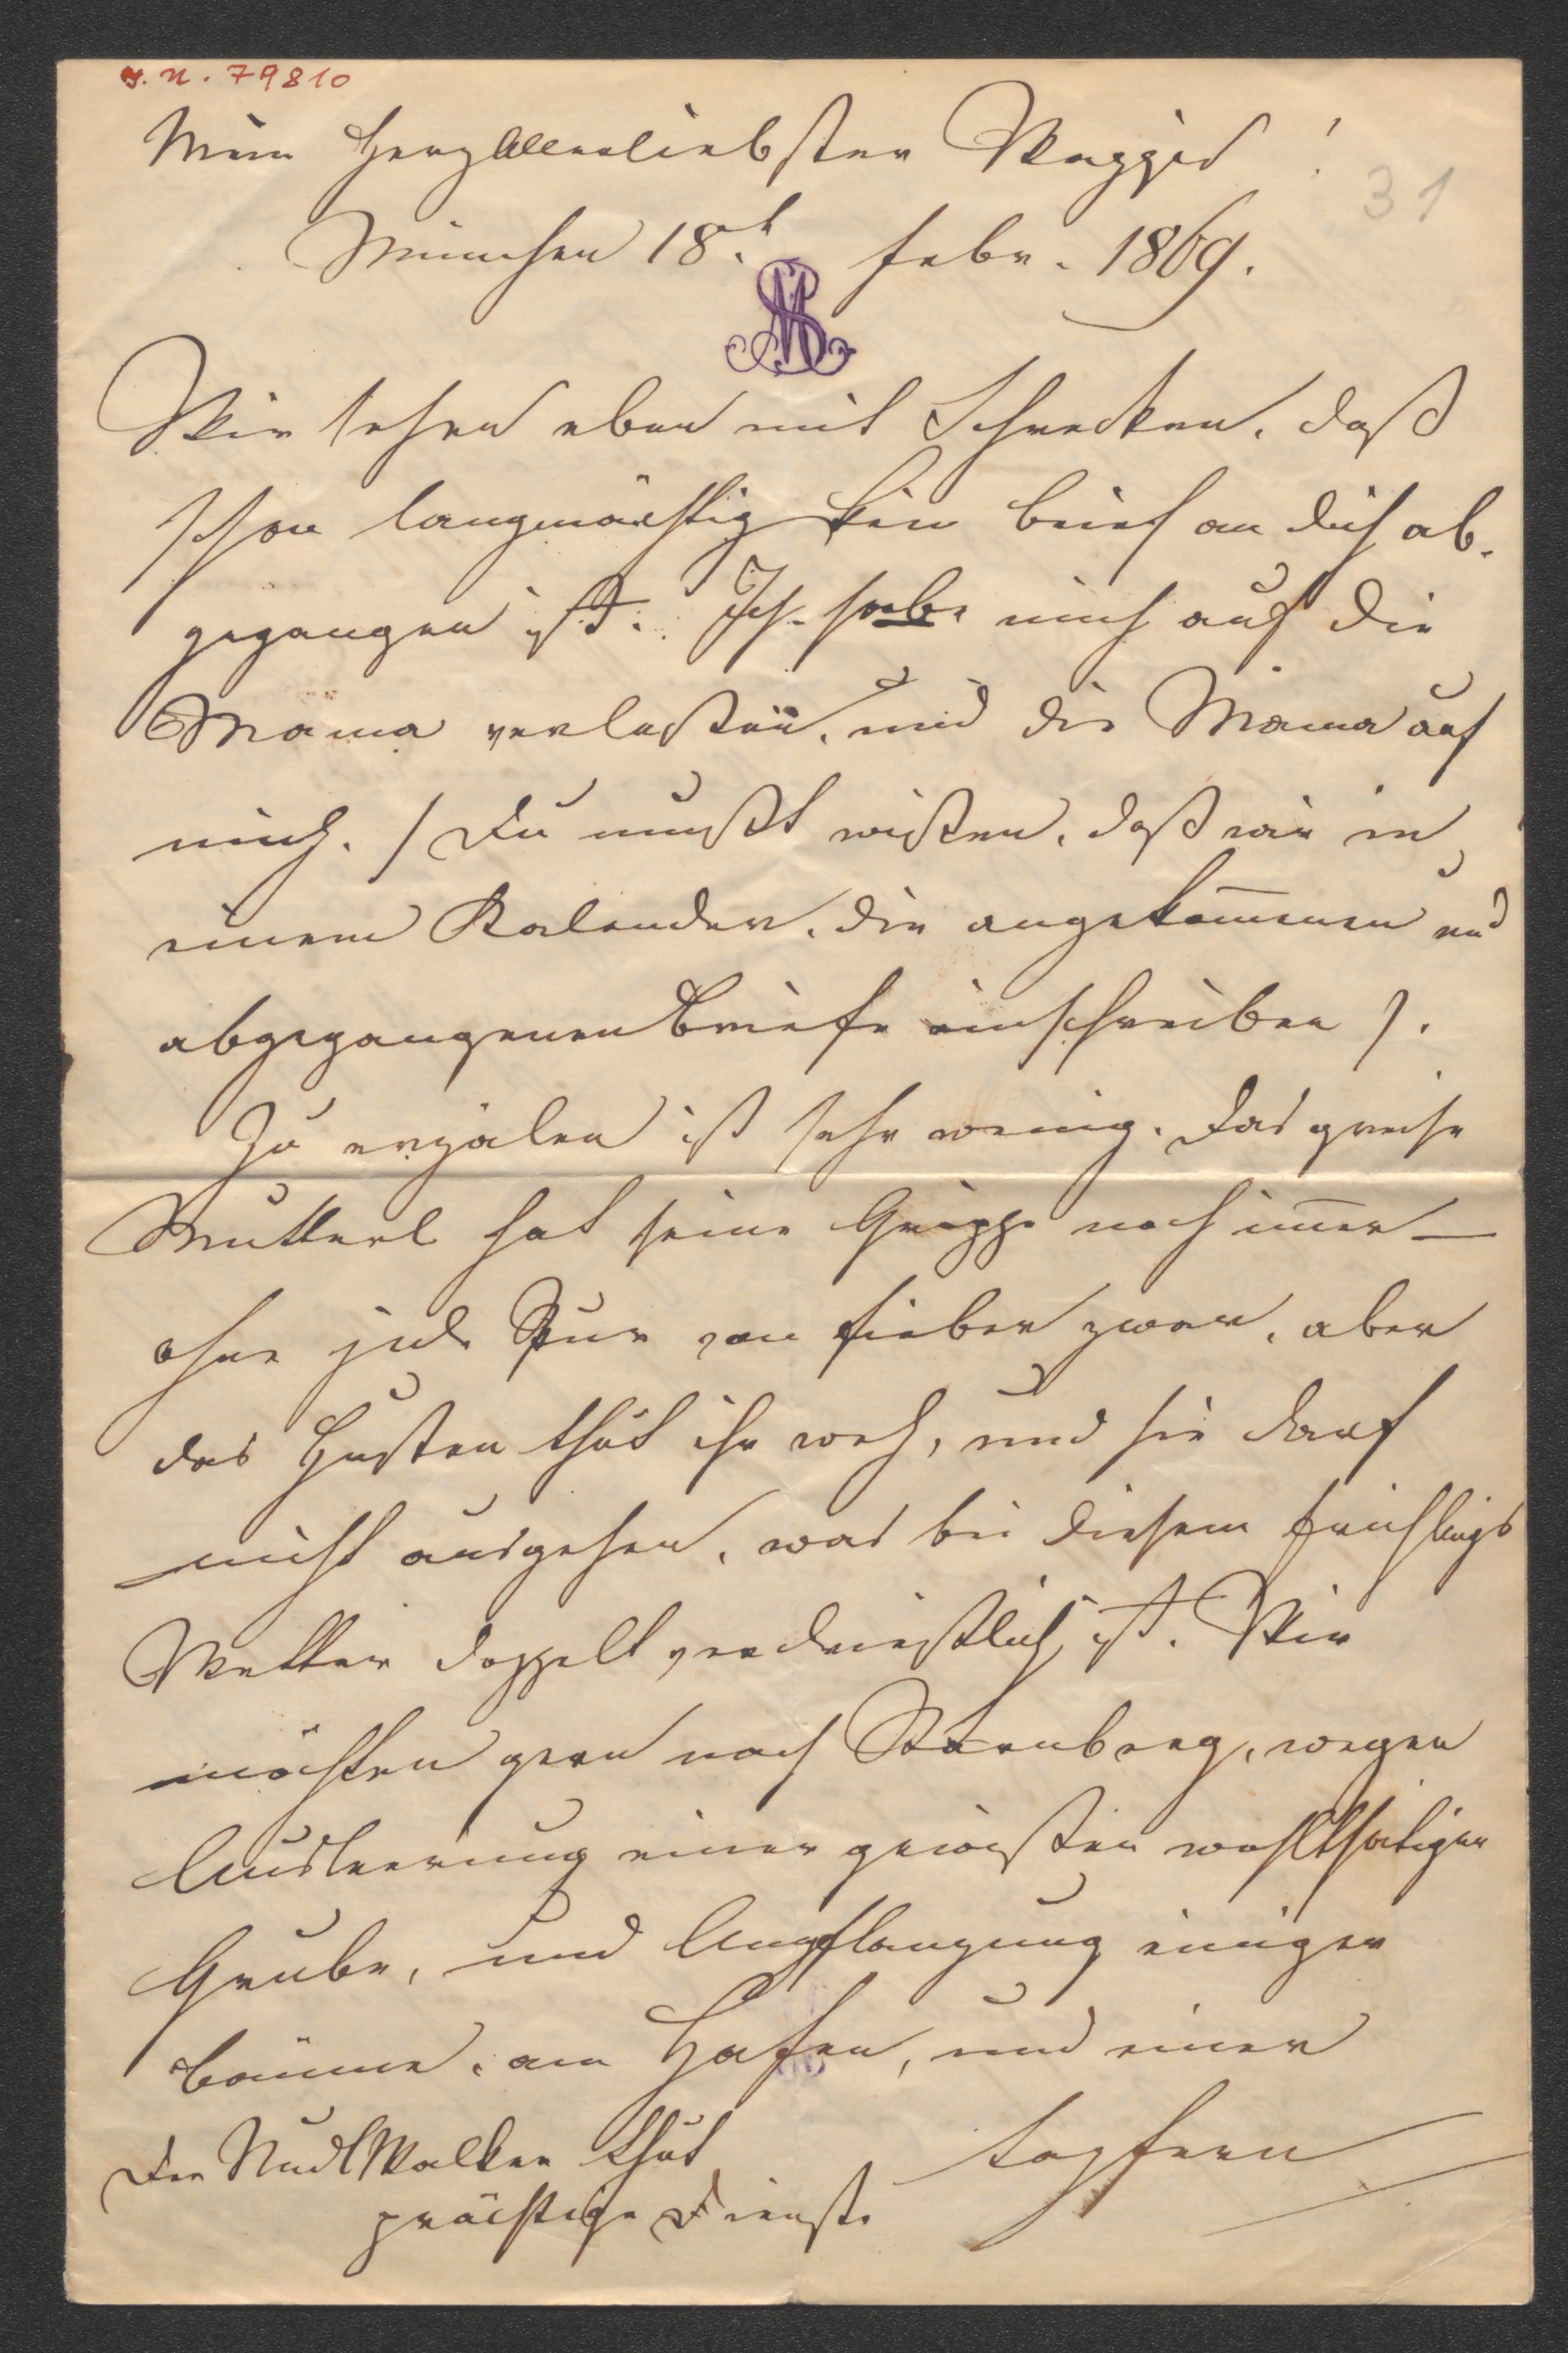 J. N. 79810
Mein Herzallerliebster
31
München 18t Febr. 1869.
Wir sehen eben mit Schrecken, daß
schon langmächtig kein Brief an dich ab-
gegangen ist. Ich habe mich auf die
Mama verlaßen, und die Mama auf
mich. / Du mußt wißen, daß wir in
einem Kalender, die angekommenen und
abgegangenen Briefe einschreiben /.
Zu erzälen ist sehr wenig. Das greise
Mutterl hat seine Grippe noch im̅er —
ohne jede Spur von Fieber zwar, aber
das Husten thut ihr weh, und sie darf
nicht ausgehen, was bei diesem Frühlings
Wetter doppelt verdrießlich ist. Wir
möchten gern nach Starnberg, wegen
Ausleerung einer gewißen wohlthätigen
Grube, und Anpflanzung einiger
Bäume, am Hafen, und einer
tapfern
Der NudlWalker thut
prächtige Dienste